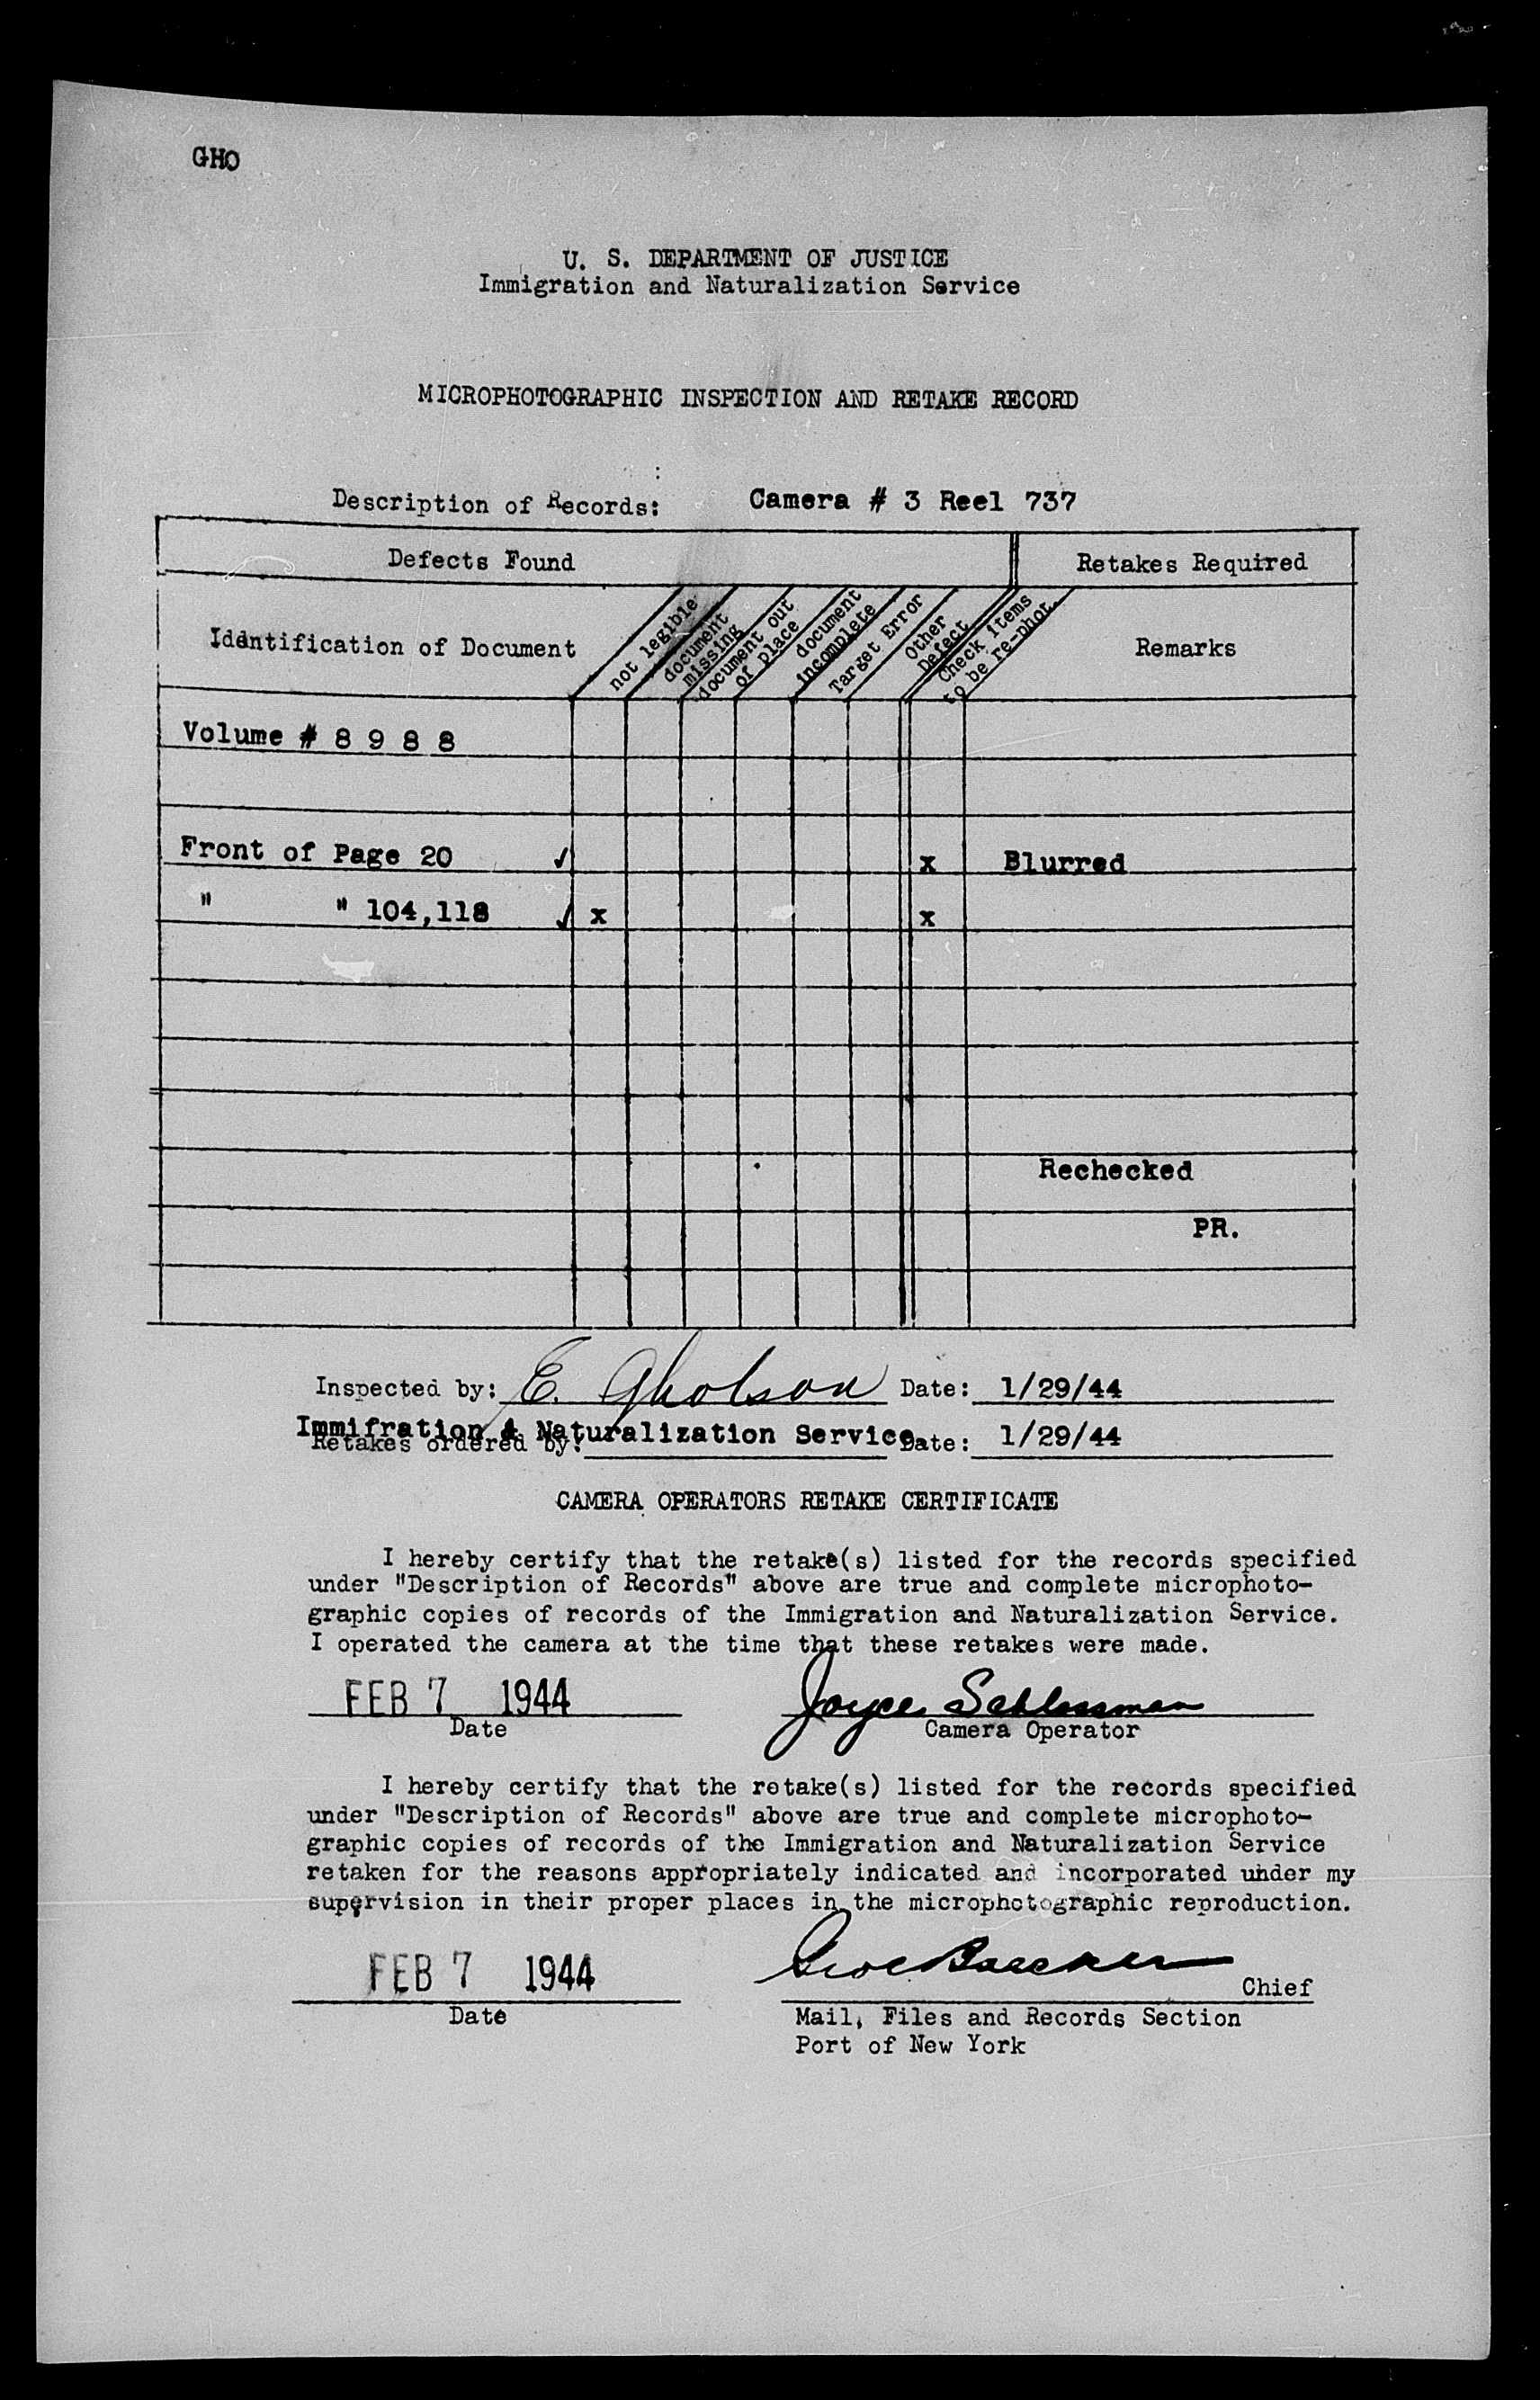 GHO
U. S. DEPARTMENT OF JUSTICE
Immigration and Naturalization Service
MICROPHOTOGRAPHIC INSPECTION AND RETAKE RECORD
Description of Records: Camera # 3 Reel 737
Defects Found Retakes Required
Identification of Document not legible document missing document out of place document incomplete Target Error Other Defect Check items to be re-phot. Remarks
Volume # 8 9 8 8
Front of Page 20 ✓ x Blurred
" " 104,118 ✓ x x
Rechecked
PR.
Inspected by: E. Gholson Date: 1/29/44
Immifration & Naturalization Service
Retakes ordered by: Date: 1/29/44
CAMERA OPERATORS RETAKE CERTIFICATE
I hereby certify that the retake(s) listed for the records specified
under "Description of Records" above are true and complete microphoto-
graphic copies of records of the Immigration and Naturalization Service.
I operated the camera at the time that these retakes were made.
FEB 7 1944 Joyce Schlossman
Date Camera Operator
I hereby certify that the retake(s) listed for the records specified
under "Description of Records" above are true and complete microphoto-
graphic copies of records of the Immigration and Naturalization Service
retaken for the reasons appropriately indicated and incorporated under my
supervision in their proper places in the microphotographic reproduction.
FEB 7 1944
Chief
Date Mail, Files and Records Section
Port of New York